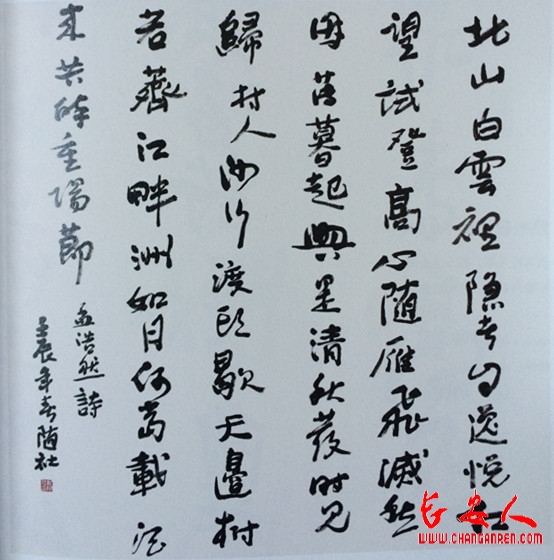 北山白雲裡隐者自逸悦相
望試登高心随雁飛滅愁
因薄暮起興是清秋發时见
歸村人沙行渡头歇天邊树
若薺江畔洲如月何當載酒
来共醉重陽節
孟浩然詩
壬辰年春随社
长安人
WWW.CHANGANREN.COM